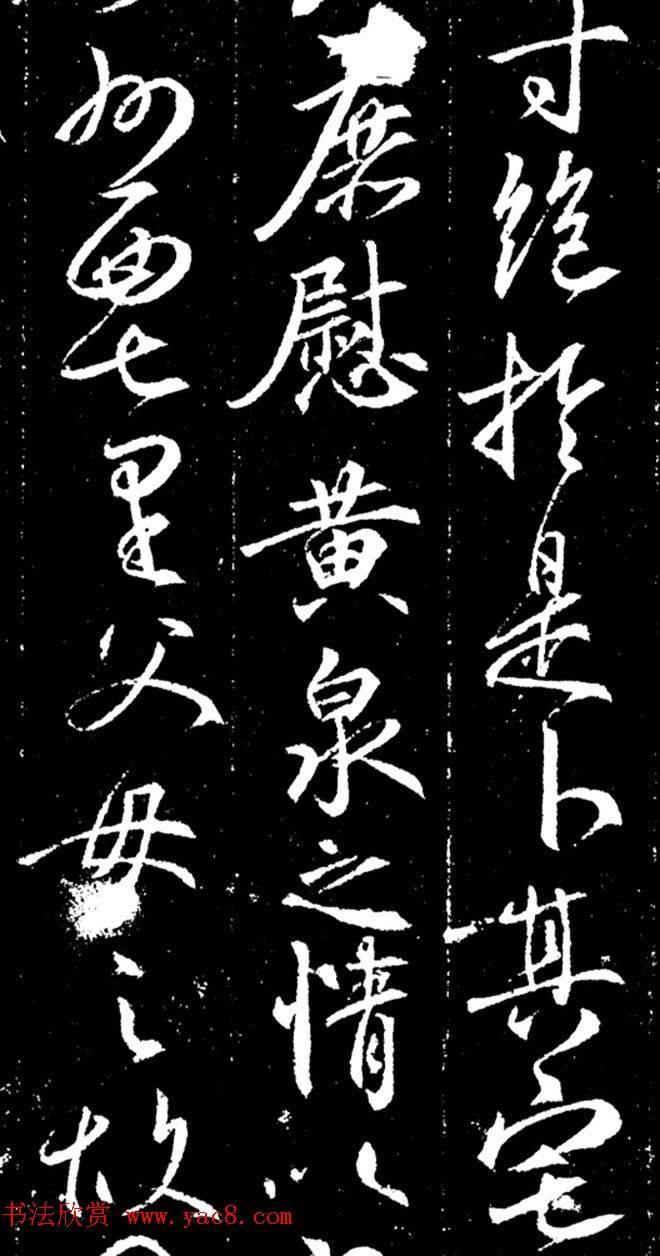 寸絶於是卜其宅
庶慰黄泉之情以
州西七里父母之故
书法欣赏 www.yac8.com